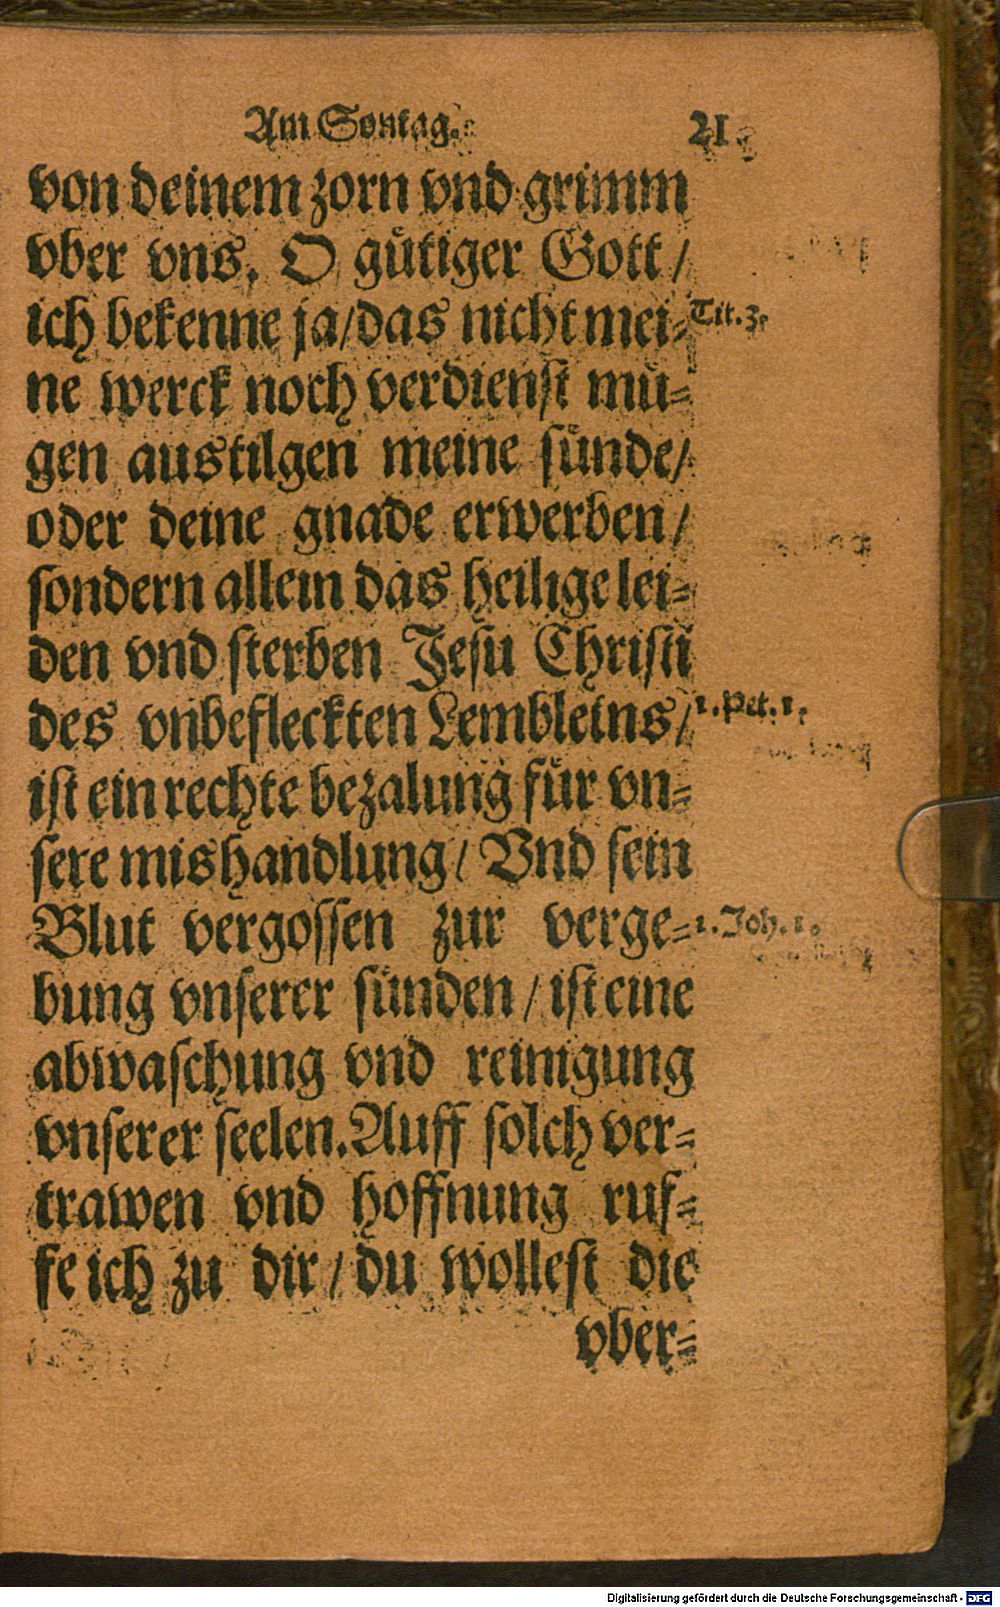 Am Sontag. 21.
von deinem zorn vnd grimm
vber vns. O gütiger Gott /
ich bekenne ja/das nicht mei- Tit. 3.
ne werck noch verdienst mü-
gen austilgen meine sünde/
oder deine gnade erwerben/
sondern allein das heilige lei-
den vnd sterben Jesu Christi
des vnbefleckten Lembleins/ 1. Pet. 1.
ist ein rechte bezalung für vn-
sere mishandlung/ Vnd sein
Blut vergossen zur verge- 1. Joh. 1.
bung vnserer sünden / ist eine
abwaschung vnd reinigung
vnserer seelen. Auff solch ver-
trawen vnd hoffnung ruf-
fe ich zu dir / du wollest die
vber-
Digitalisierung gefördert durch die Deutsche Forschungsgemeinschaft - DFG